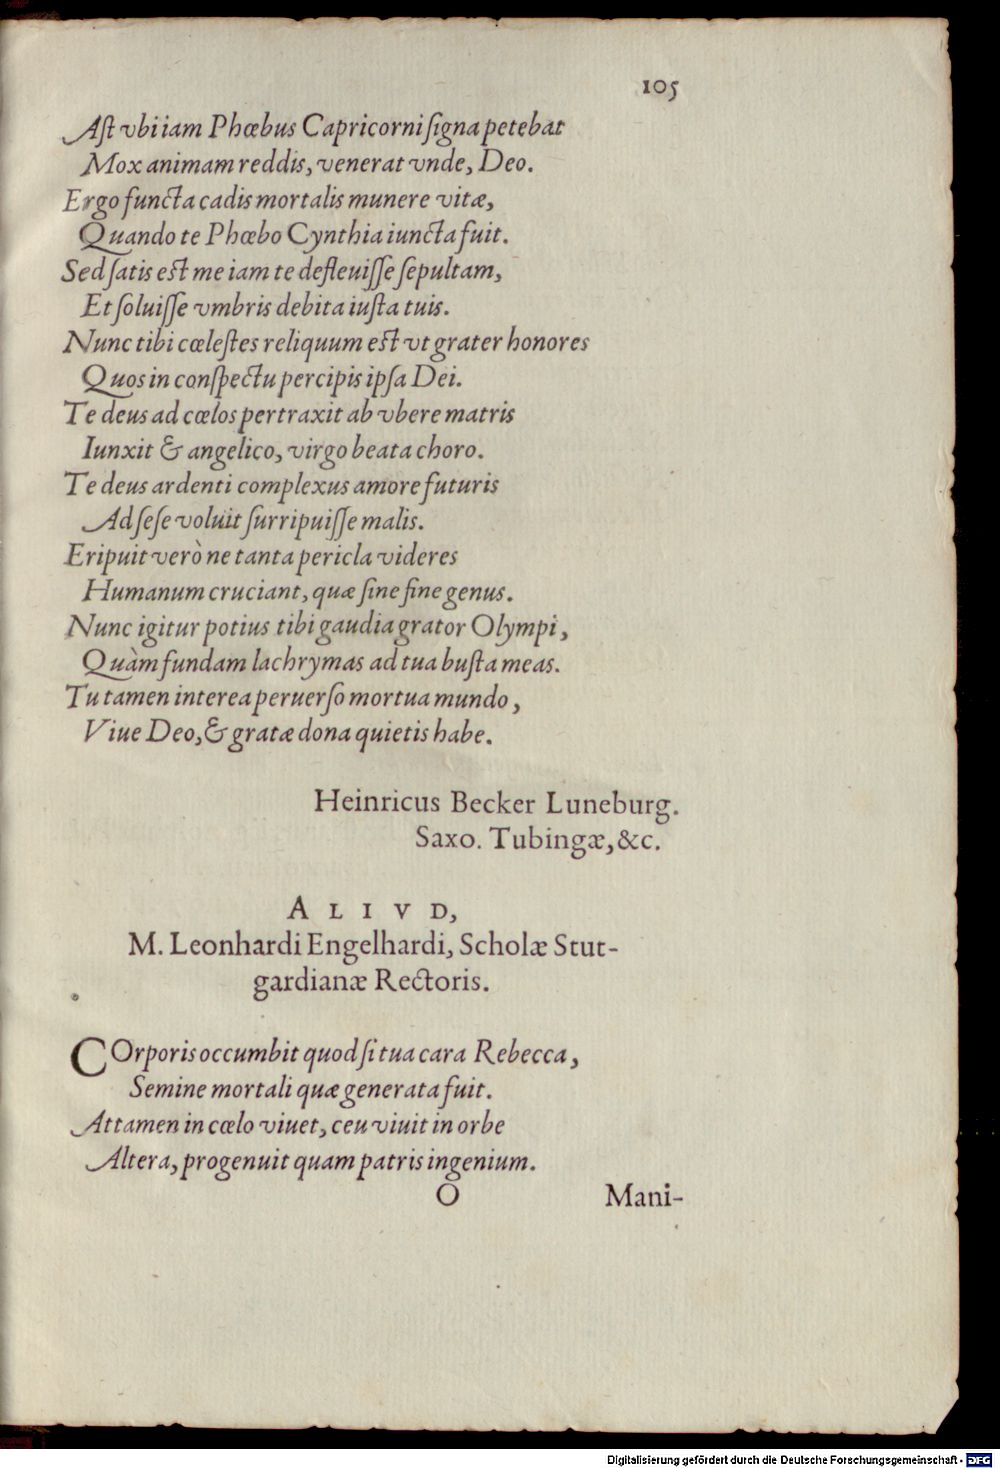 105
Aſt vbi iam Phœbus Capricorni ſigna petebat
Mox animam reddis, venerat vnde, Deo.
Ergo functa cadis mortalis munere vitæ,
Quando te Phœbo Cynthia iuncta fuit.
Sed ſatis eſt me iam te defleuiſſe ſepultam,
Et ſoluiſſe vmbris debita iuſta tuis.
Nunc tibi cœleſtes reliquum eſt vt grater honores
Quos in conſpectu percipis ipſa Dei.
Te deus ad cœlos pertraxit ab vbere matris
Iunxit & angelico, virgo beata choro.
Te deus ardenti complexus amore futuris
Ad ſeſe voluit ſurripuiſſe malis.
Eripuit verò ne tanta pericla videres
Humanum cruciant, quæ ſine fine genus.
Nunc igitur potius tibi gaudia grator Olympi,
Quàm fundam lachrymas ad tua buſta meas.
Tu tamen interea peruerſo mortua mundo,
Viue Deo, & gratæ dona quietis habe.
Heinricus Becker Luneburg.
Saxo. Tubingæ, &c.
ALIVD,
M. Leonhardi Engelhardi, Scholæ Stut-
gardianæ Rectoris.
COrporis occumbit quod ſi tua cara Rebecca,
Semine mortali quæ generata fuit.
Attamen in cœlo viuet, ceu viuit in orbe
Altera, progenuit quam patris ingenium.
O Mani-
Digitalisierung gefördert durch die Deutsche Forschungsgemeinschaft - DFG